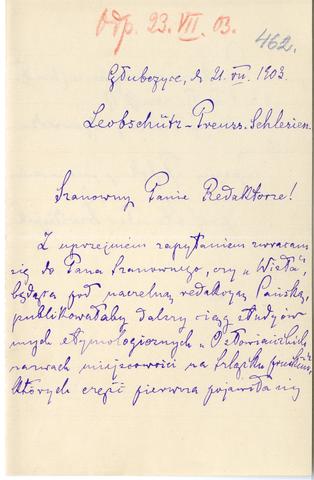 Odp. 23. VII. 03.
462.
Głubczyce, d. 21. VII. 1903
Leobschütz - Preuss. Schlesien.
Szanowny Panie Redaktorze!
Z uprzejmem zapytaniem zwracam
się do Pana Szanownego, czy „Wisła",
będąca pod naczelną redakcyą Pańską,
publikowałaby dalszy ciąg studyów
mych etymologicznych „O słowiańskich
nazwach miejscowości na Szlązku pruskim",
których część pierwsza pojawiła się